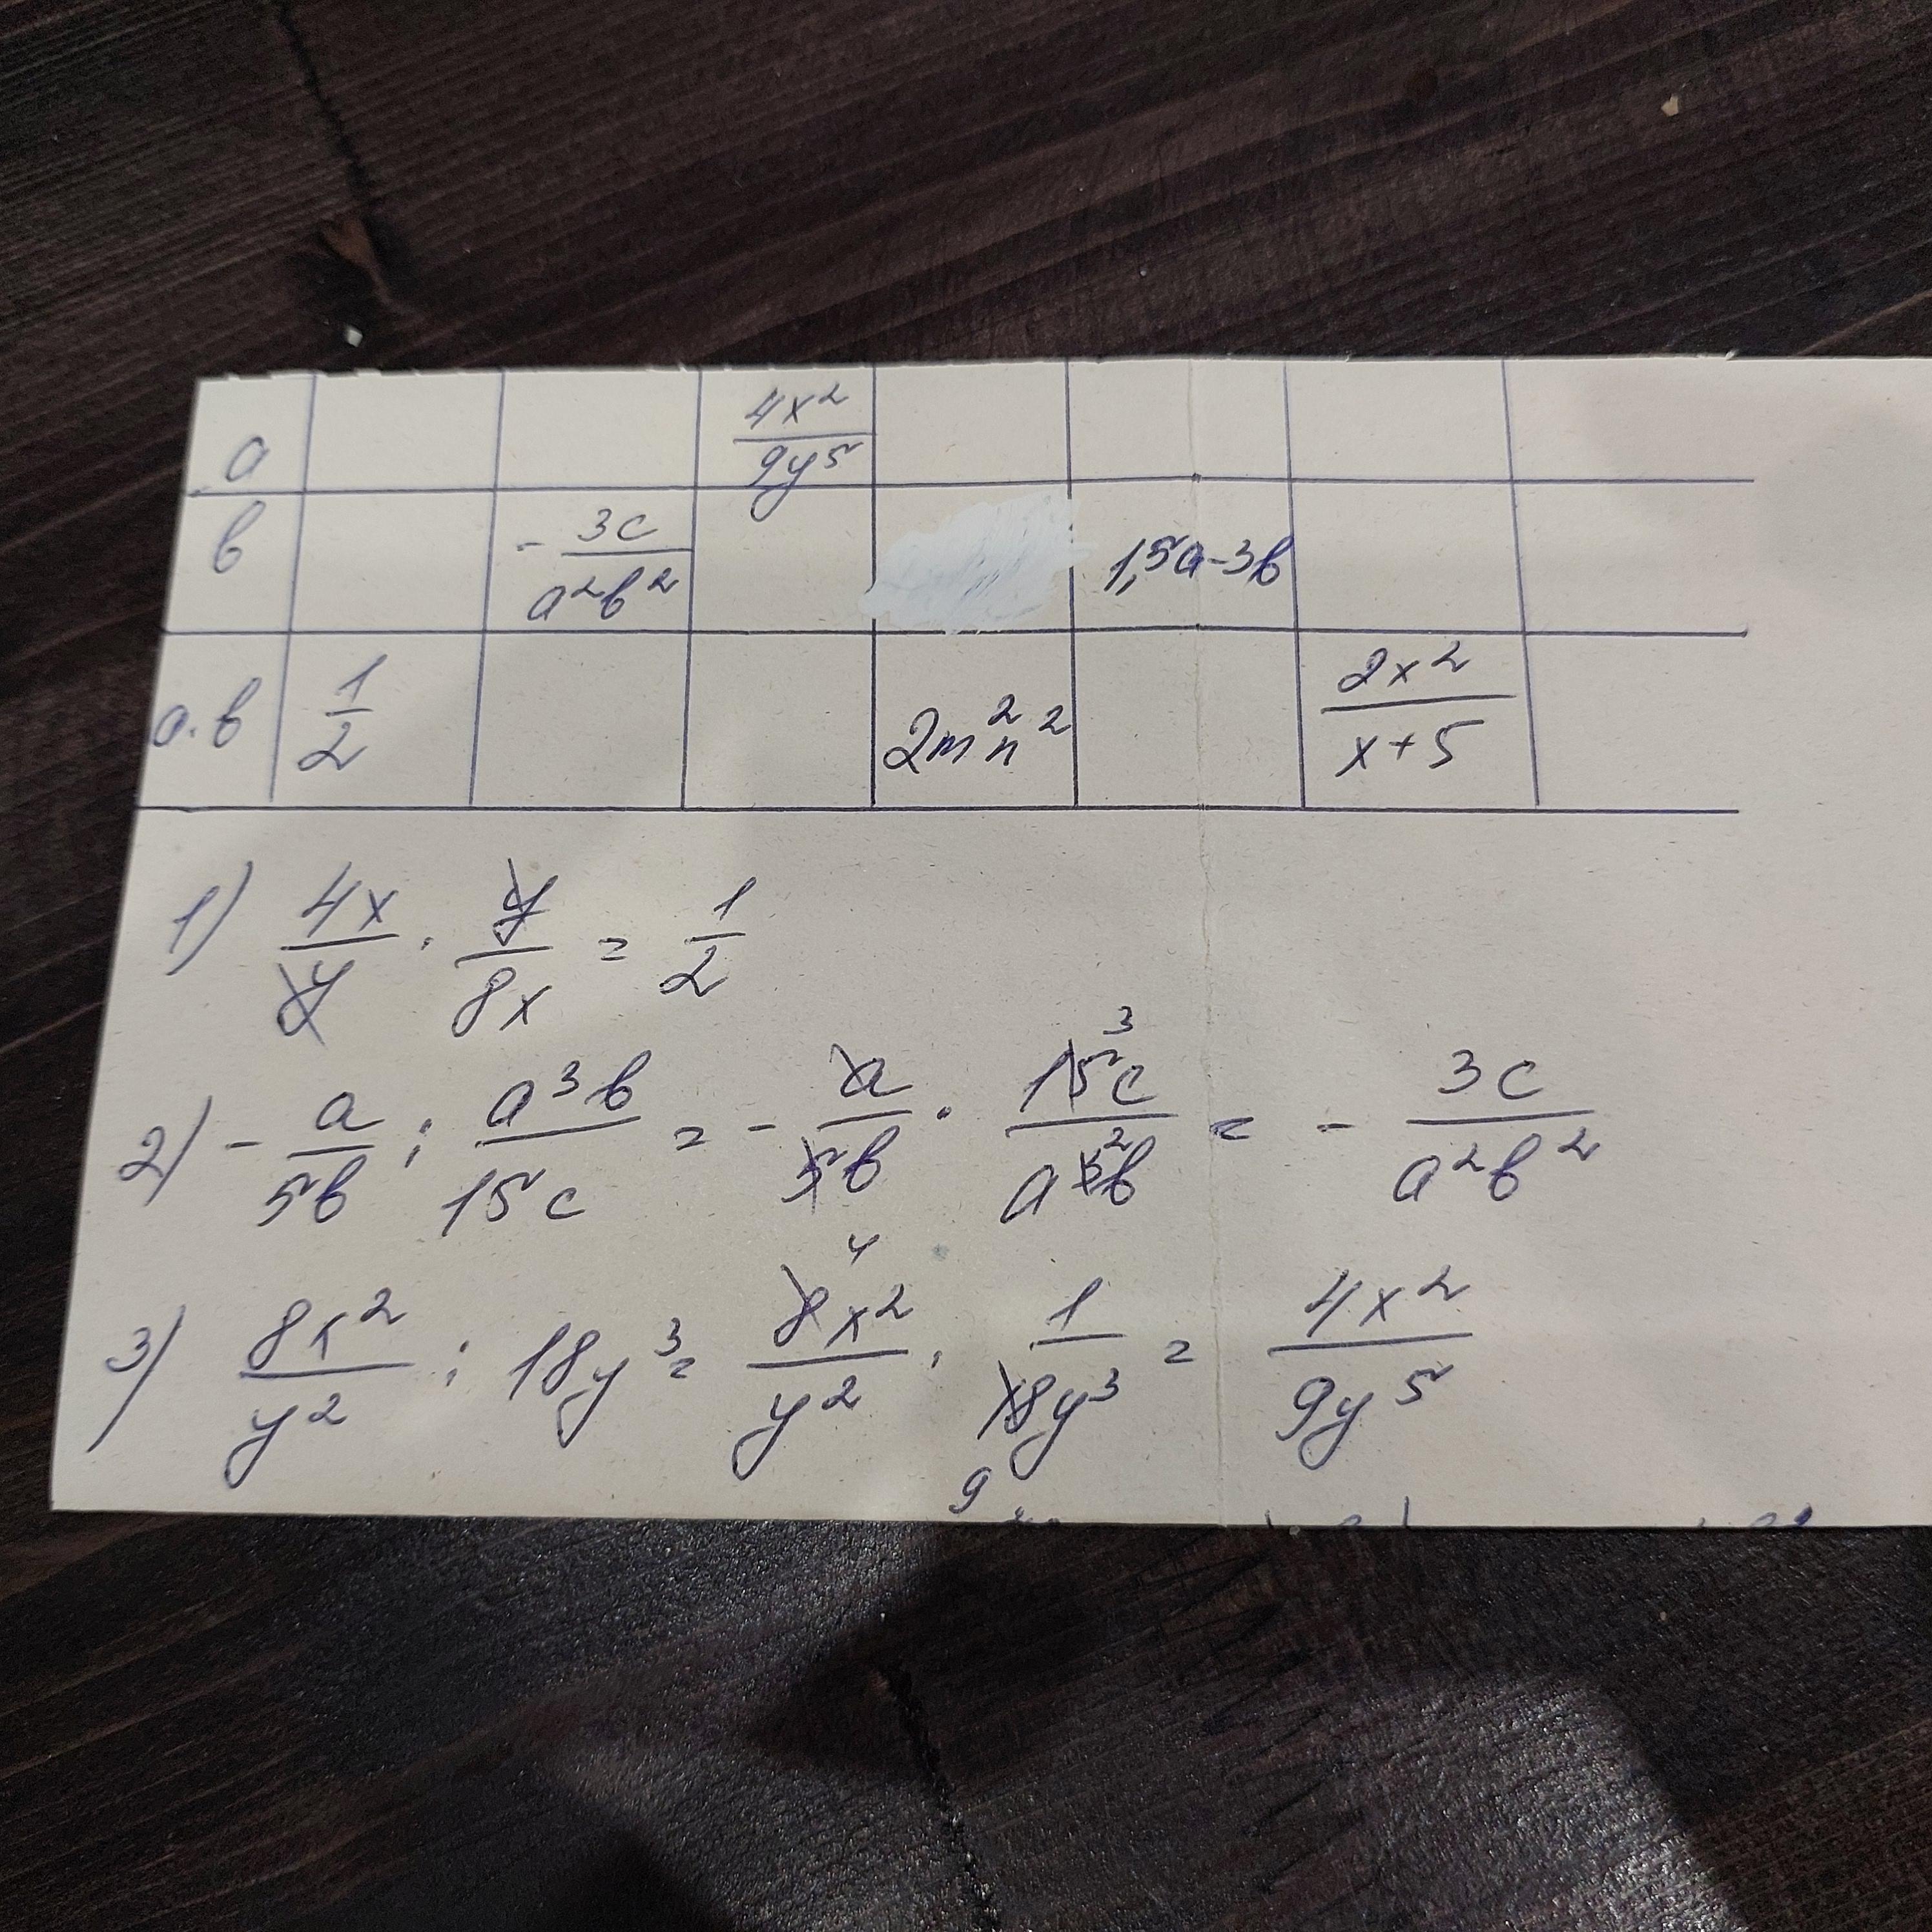 a 4x²/9y⁵
b - 3c/a²b² 1,5a-3b
a·b 1/2 2m²n² 2x²/x+5
1) 4x/y · y/8x = 1/2
2) - a/5b : a³b/15c = - a/5b · 15c/a³b = - 3c/a²b²
3) 8x²/y² : 18y³ = 8x²/y² · 1/18y³ = 4x²/9y⁵